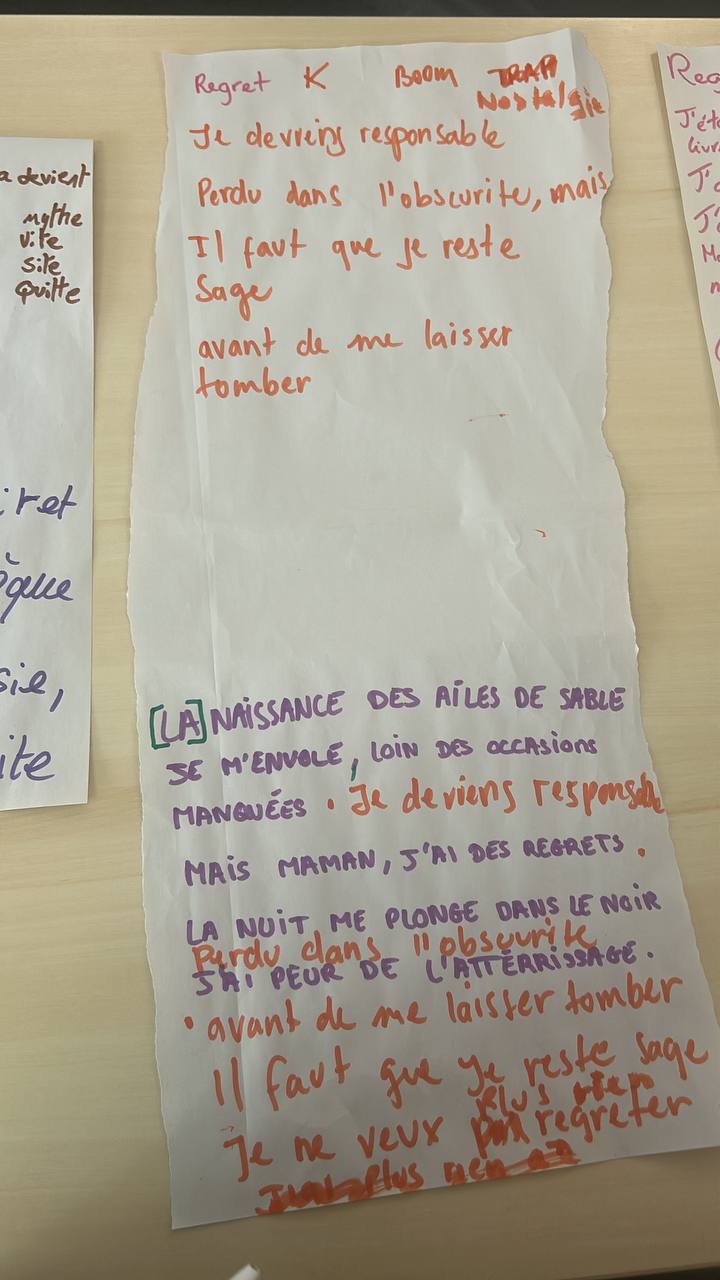 Regret K Boom TRAP
Nostalgie
Je devreins responsable
Perdu dans l'obscurite, mais
Il faut que je reste
Sage
avant de me laisser
tomber
[LA] NAISSANCE DES AILES DE SABLE
JE M'ENVOLE, LOIN DES OCCASIONS
MANQUÉES. Je deviens responsable
MAIS MAMAN, J'AI DES REGRETS.
LA NUIT ME PLONGE DANS LE NOIR
Perdu dans l'obscurite
J'AI PEUR DE L'ATTÉRRISSAGE.
• avant de me laisser tomber
Il faut que je reste sage
plus rien
Je ne veux regretter
plus rien
a devient
mythe
vite
site
quitte
iret
èque
sie,
ite
Reg
J'éta
livr
J'a
J'a